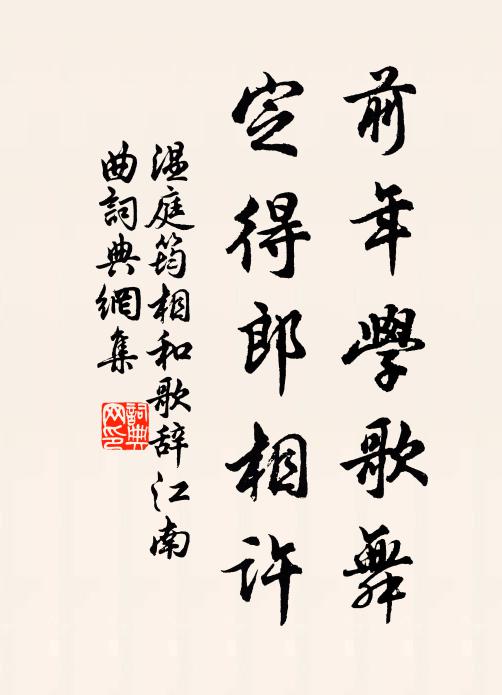 前年學歌舞
定得郎相許
温庭筠相和歌辞江南
曲詞典網集
詞典网印